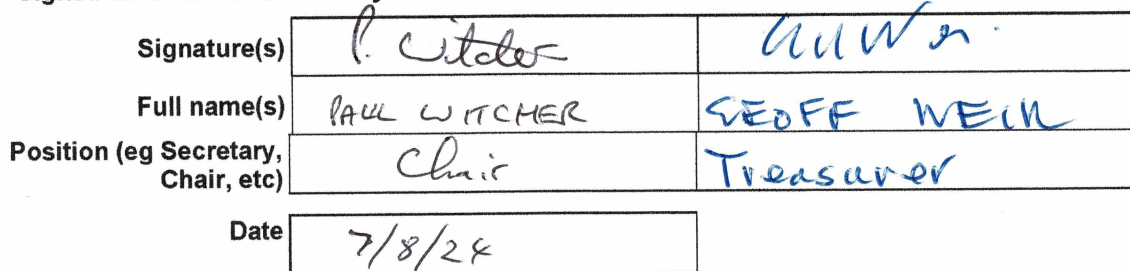 Signature(s) P. Witcher
Full name(s) PAUL WITCHER GEOFF WEIR
Position (eg Secretary, Chair Treasurer
Chair, etc)
Date 7/8/24